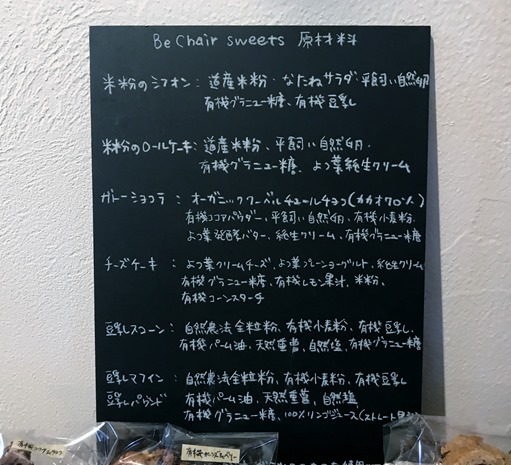 Be Chair sweets 原材料
米粉のシフォン : 道産米粉・なたねサラダ 平飼い自然卵
有機グラニュー糖、有機豆乳
米粉のロールケーキ : 道産米粉、平飼い自然卵、
有機グラニュー糖、よつ葉純生クリーム
ガトーショコラ : オーガニッククーベルチュールチョコ(カカオ70%)
有機ココアパウダー、平飼い自然卵、有機小麦粉、
よつ葉発酵バター、純生クリーム、有機グラニュー糖
チーズケーキ : よつ葉クリームチーズ、よつ葉プレーンヨーグルト、純生クリーム
有機グラニュー糖、有機レモン果汁、米粉、
有機コーンスターチ
豆乳スコーン : 自然農法全粒粉、有機小麦粉、有機豆乳、
有機パーム油、天然重曹、自然塩、有機グラニュー糖
豆乳マフィン : 自然農法全粒粉、有機小麦粉、有機豆乳
豆乳パウンド 有機パーム油、天然重曹、自然塩
有機グラニュー糖、100%リンゴジュース(ストレート